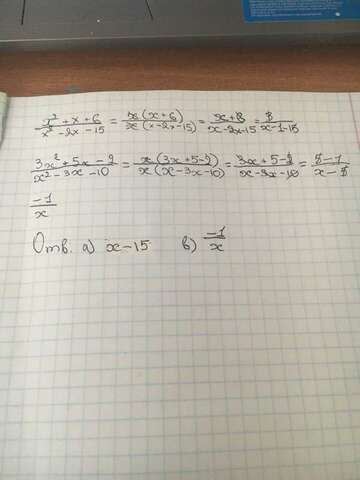 x² + x + 6 / x² - 2x - 15 = x(x + 6) / x(x - 2x - 15) = x + 6 / x - 2x - 15 = 3 / x - 1 - 15
3x² + 5x - 2 / x² - 3x - 10 = x(3x + 5 - 2) / x(x - 3x - 10) = 3x + 5 - 2 / x - 3x - 10 = 5 - 1 / x - 5
-1 / x
Отв. а) x - 15 в) -1 / x